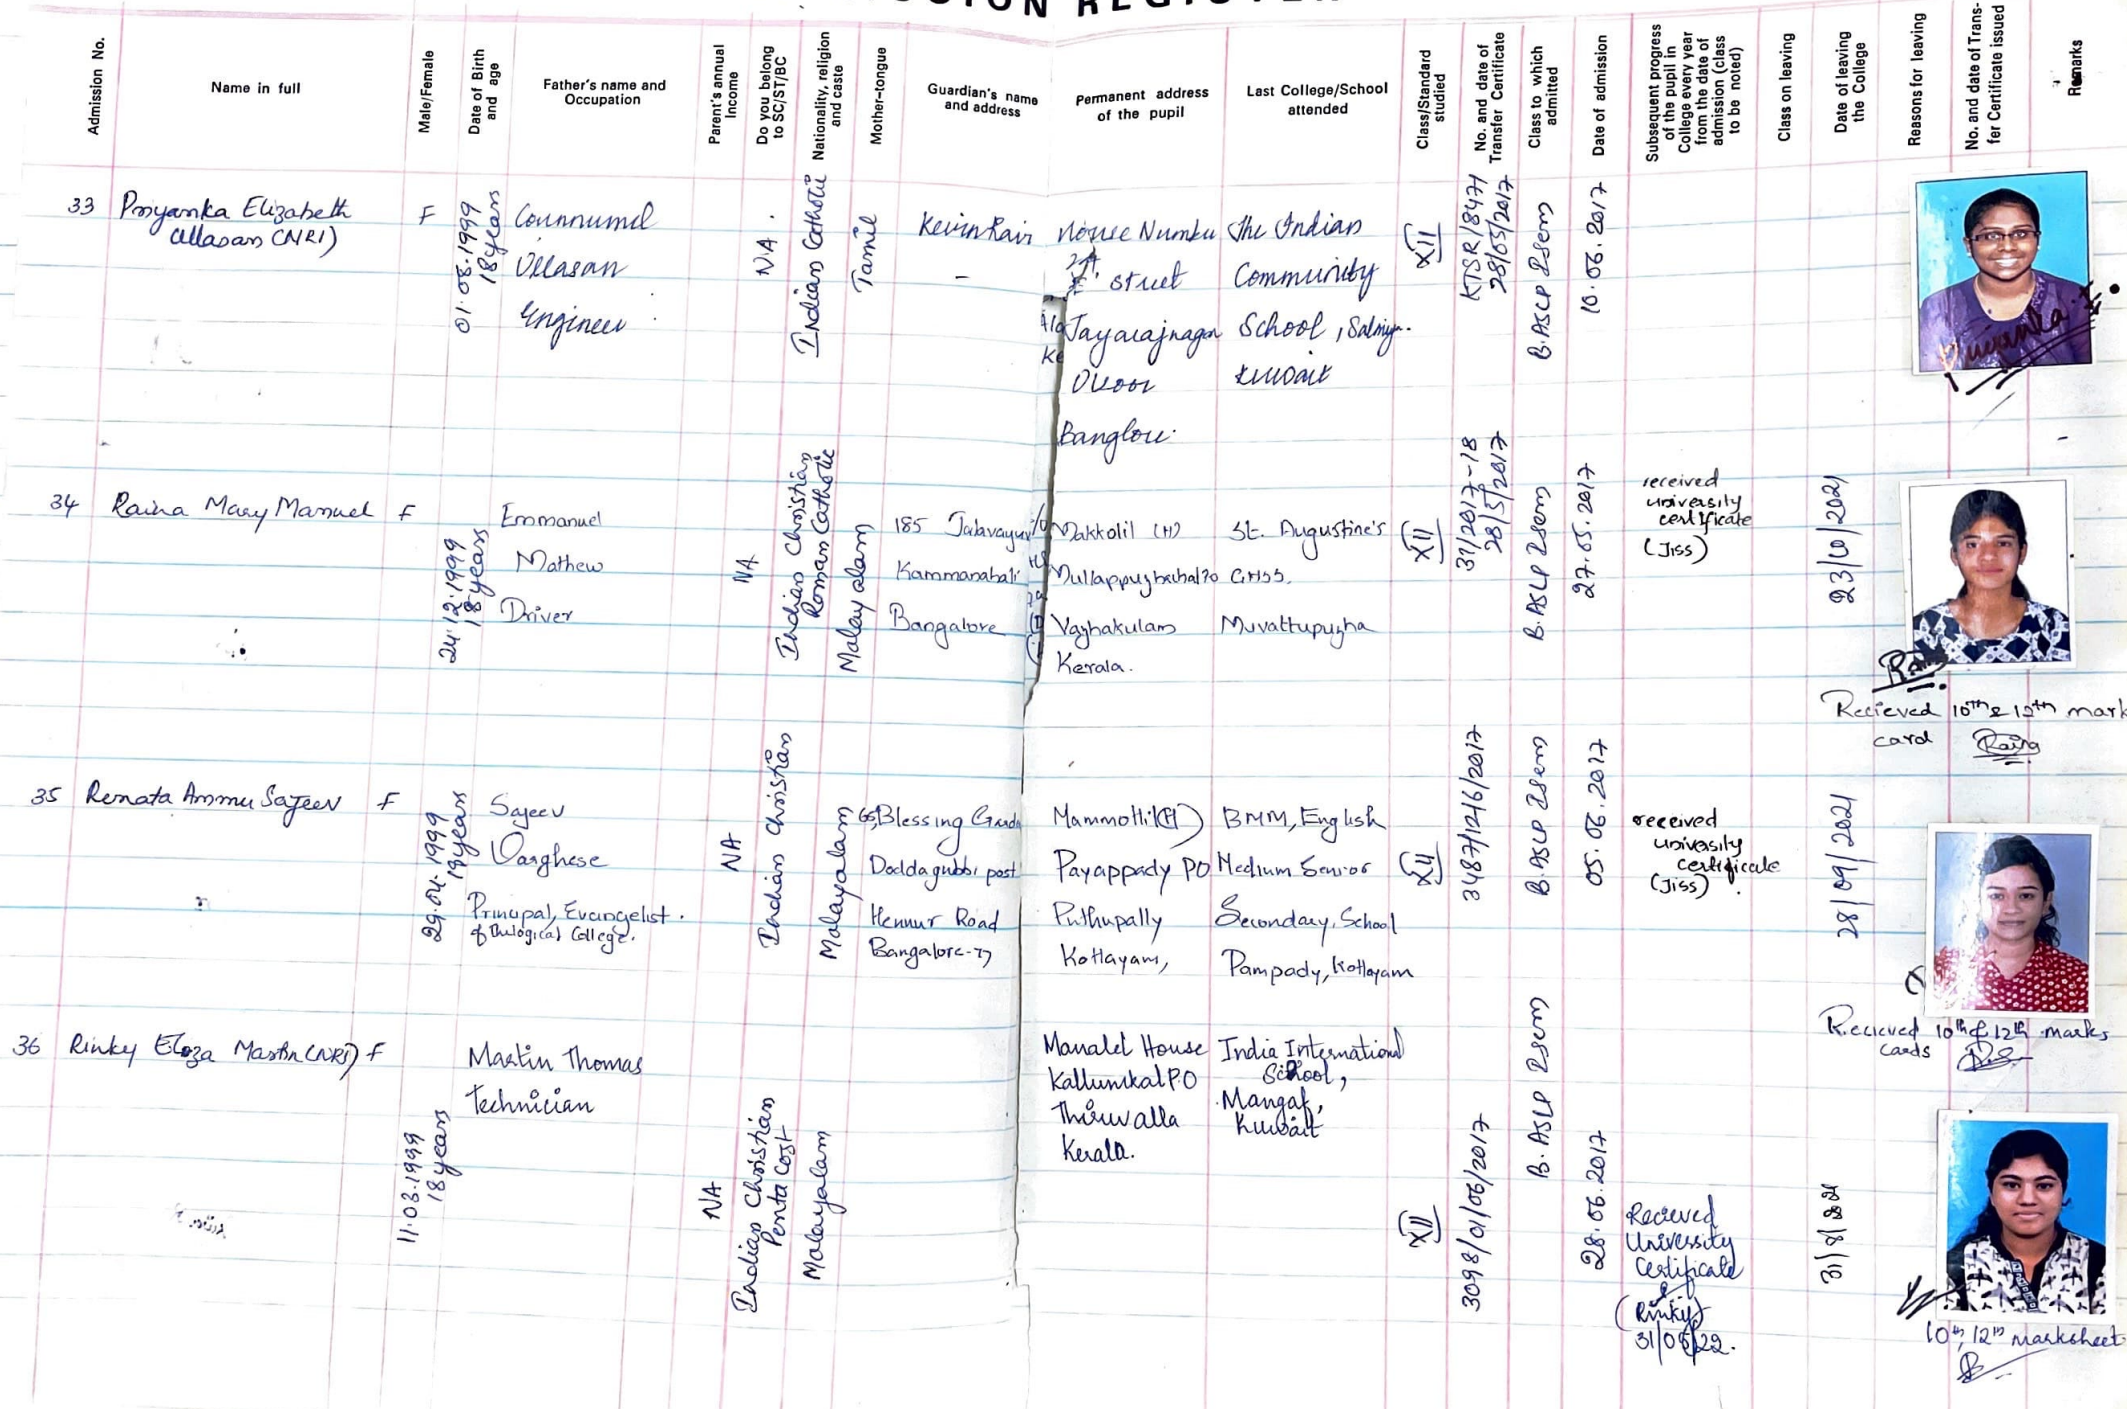 Admission No.
Name in full
Male/Female
Date of Birth
and age
Father's name and
Occupation
Parent's annual
Income
Do you belong
to SC/ST/BC
Nationality, religion
and caste
Mother-tongue
Guardian's name
and address
Permanent address
of the pupil
Last College/School
attended
Class/Standard
studied
No. and date of
Transfer Certificate
Class to which
admitted
Date of admission
Subsequent progress
of the pupil in
College every year
from the date of
admission (class
to be noted)
Class on leaving
Date of leaving
the College
Reasons for leaving
No. and date of Trans-
fer Certificate issued
Remarks
33
Priyanka Elizabeth
(NRI)
F
01.08.1999
18 years
Engineer
N.A.
Indian Catholic
Tamil
Kevin Ravi
-
House Number
Street
Jayarajnagar
Banglore.
The Indian
Community
School, Salmiya.
Kuwait
XII
KTSR/8471
28/05/2017
B.ASLP Isem
10.06.2017
34
Raina Mary Manuel
F
24.12.1999
18 years
Emmanuel
Mathew
Driver
NA
Indian Christian
Roman Catholic
Malayalam
185
Kammanahali
Bangalore
Makkolil (H)
Vazhakulam
Kerala.
St. Augustine's
GHSS.
Muvattupuzha
XII
37/2017-18
28/5/2017
B.ASLP Isem
27.05.2017
received
university
certificate
(Jiss)
23/6/2021
Raina
Recieved 10th & 12th mark
card
Raina
35
Renata Ammu Sajeev
F
29.04.1999
18 years
Sajeev
Varghese
Principal, Evangelist
of Thelogical College.
NA
Indian Christian
Malayalam
Doddagubbi post
Hennur Road
Bangalore-77
Payappady PO
Puthupally
Kottayam,
BMM, English
Medium Senior
Secondary, School
Pampady, Kottayam
XII
3487/1216/2017
B.ASLP Isem
05.06.2017
received
university
certificate
(Jiss)
28/09/2021
Recieved 10th & 12th marks
cards
36
Rinky Eliza Martin (NRI)
F
11.03.1999
18 years
Martin Thomas
Technician
NA
Indian Christian
Penta Cost
Malayalam
Manalel House
P.O
Thiruvalla
Kerala.
India International
School,
Mangaf,
Kuwait
XII
3098/01/06/2017
B. ASLP Isem
28.06.2017
Recieved
University
Certificate
(Rinky)
10th, 12th marksheet